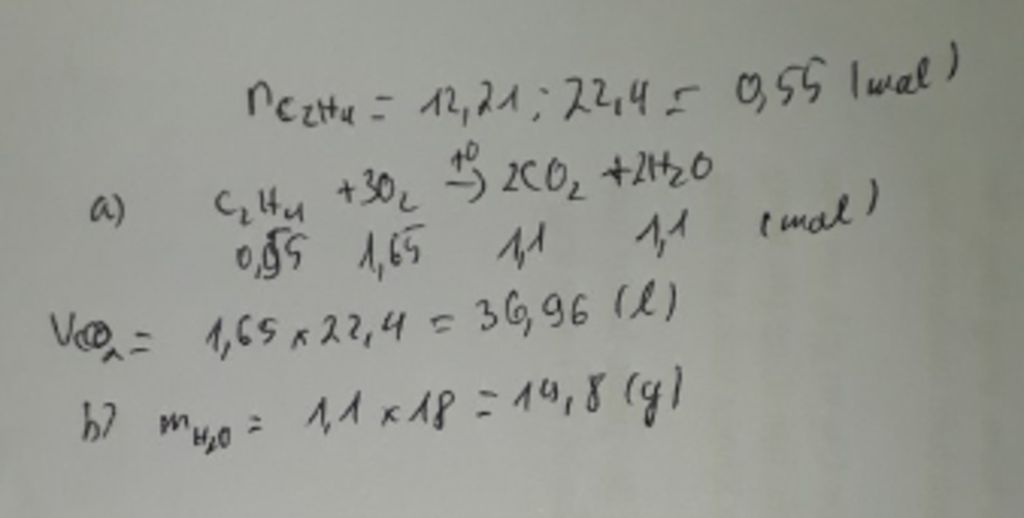 nC₂H₄ = 12,21 : 22,4 = 0,55 (mol)
a) C₂H₄ + 3O₂ →(t⁰) 2CO₂ + 2H₂O
0,55 1,65 1,1 1,1 (mol)
VCO₂ = 1,65 × 22,4 = 36,96 (l)
b) mH₂O = 1,1 × 18 = 19,8 (g)